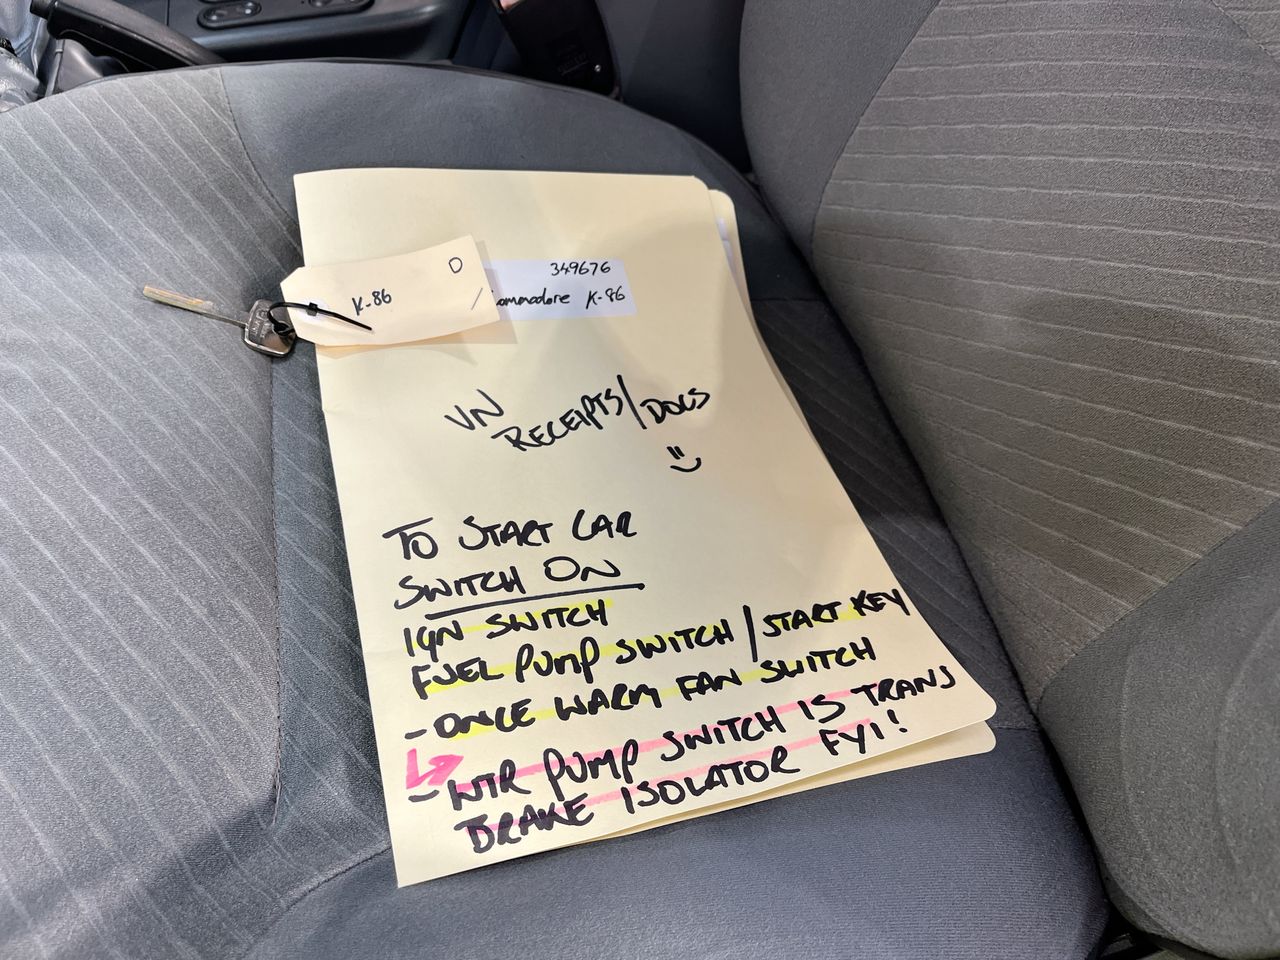 K-86
349676
Commodore K-86
VN
RECEIPTS/DOCS
TO START CAR
SWITCH ON
IGN SWITCH
FUEL PUMP SWITCH/START KEY
- ONCE WARM FAN SWITCH
- WTR PUMP SWITCH IS TRANS
BRAKE ISOLATOR FYI!